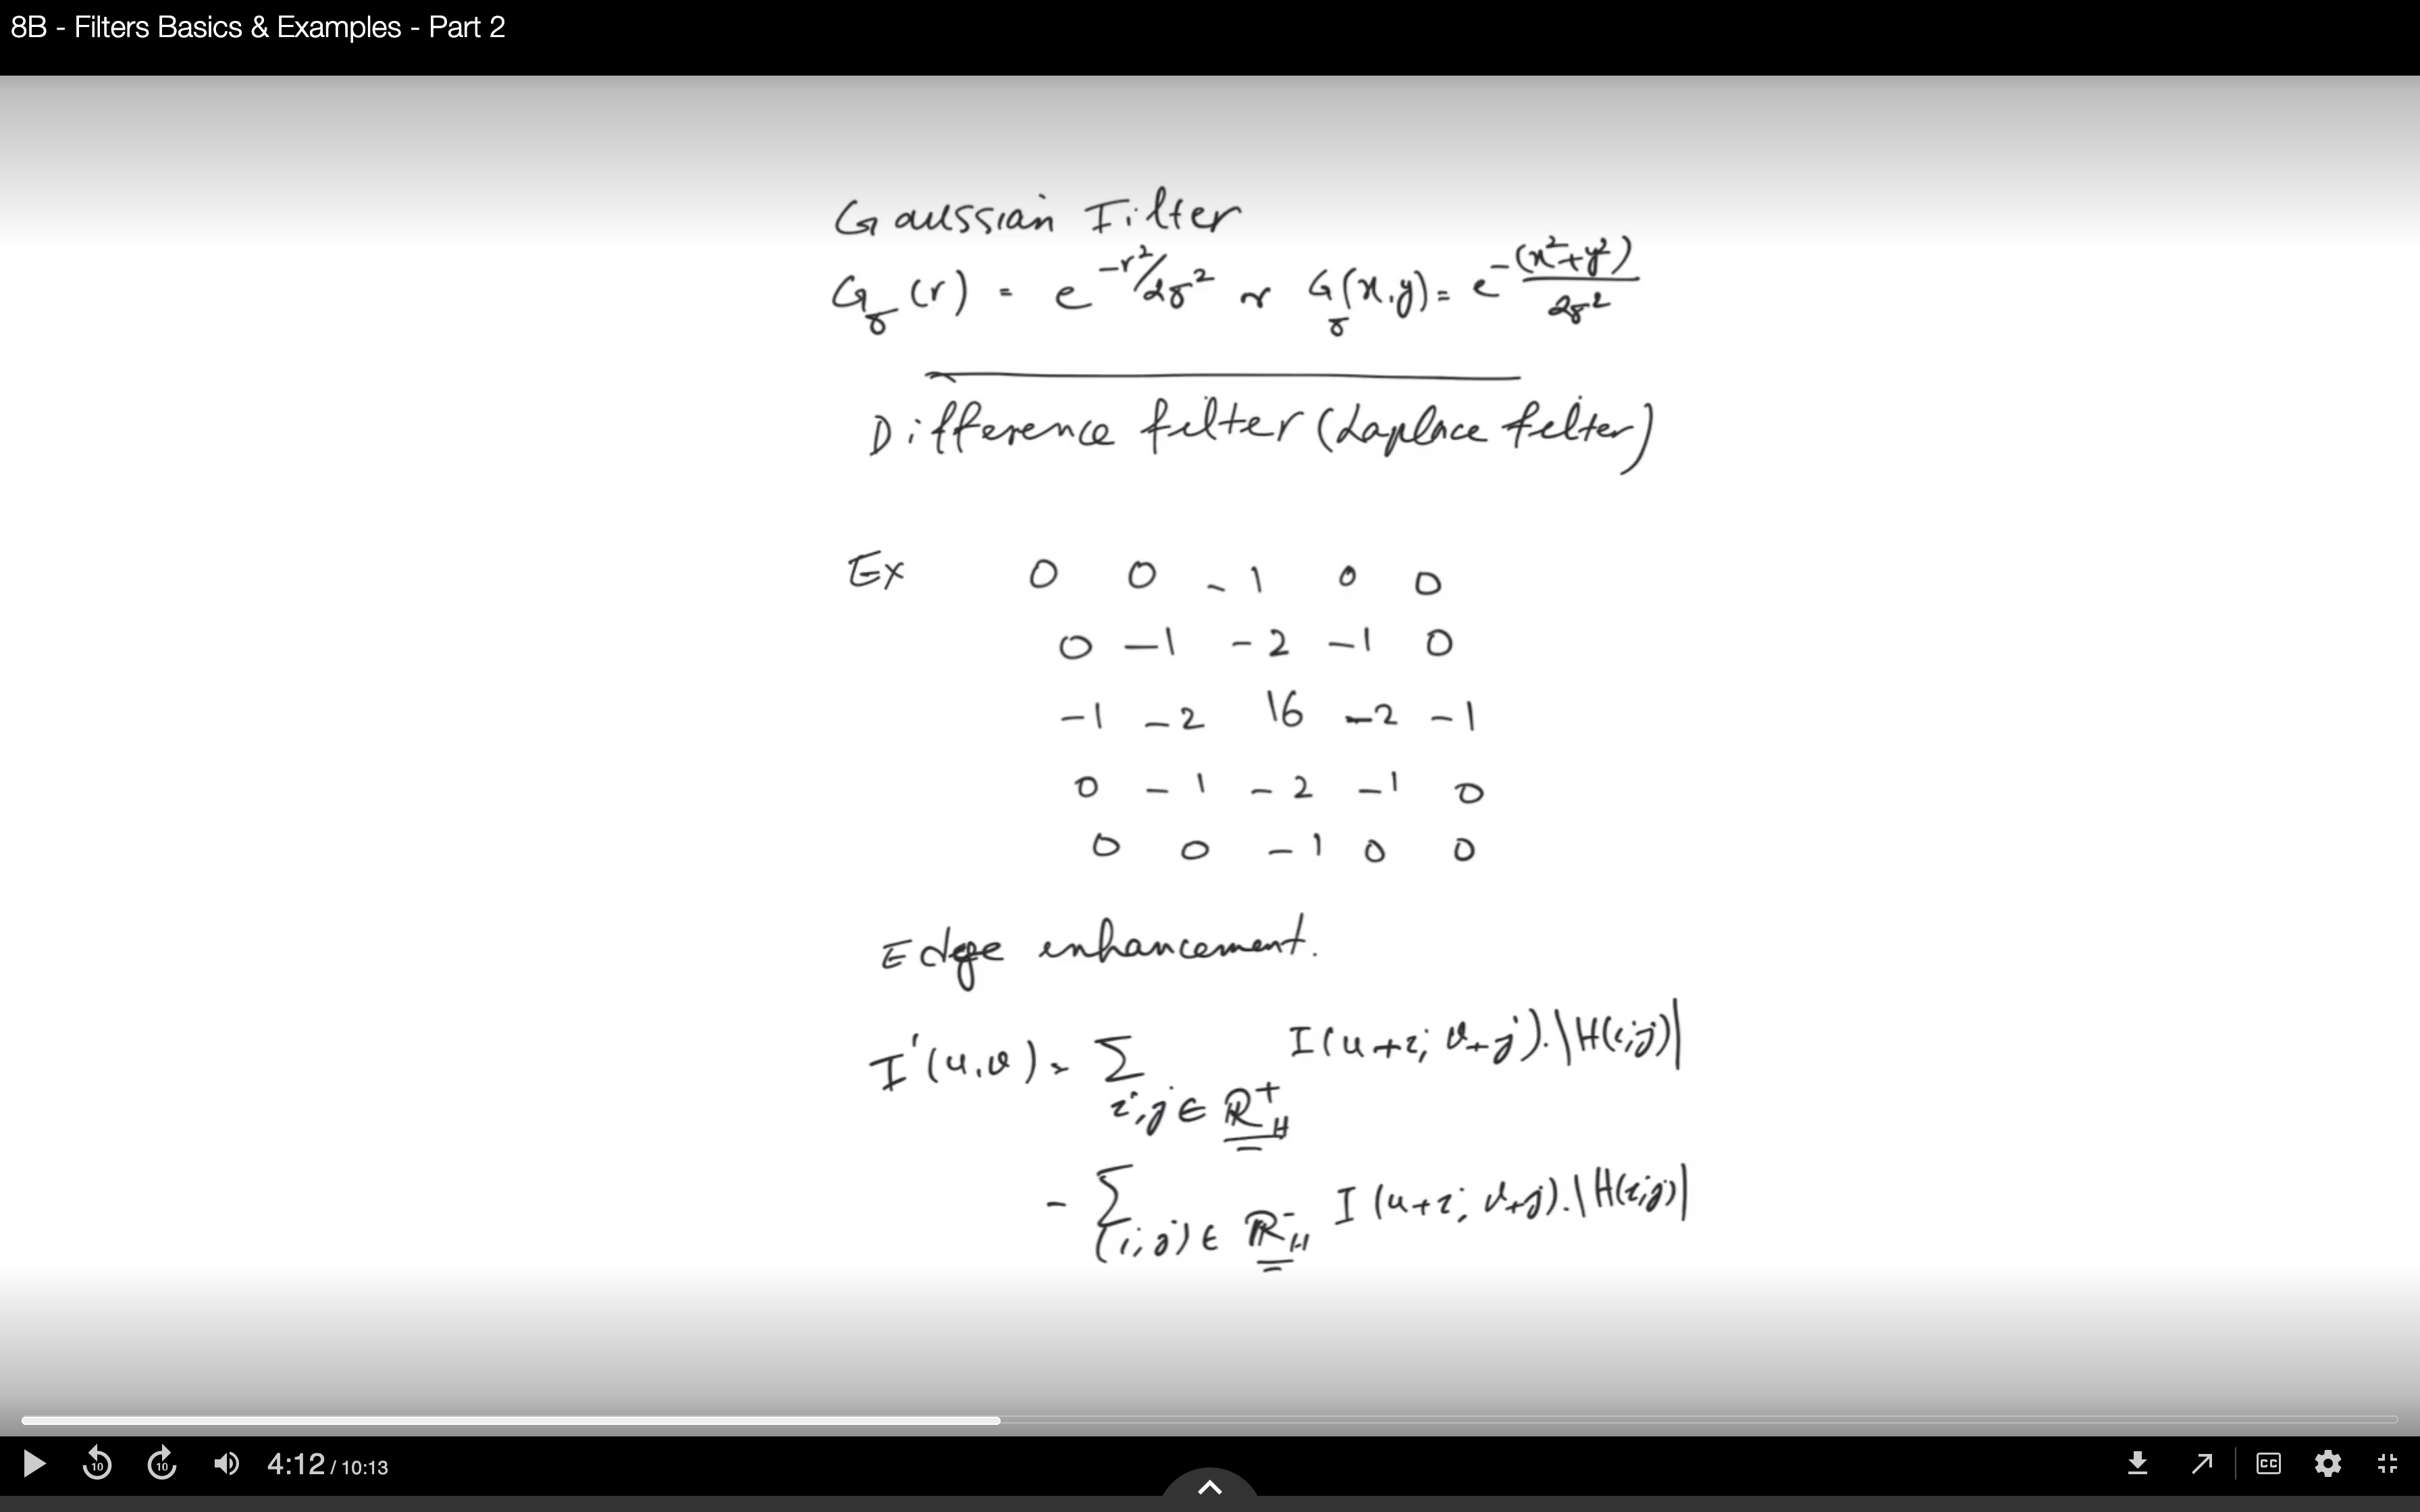 8B - Filters Basics & Examples - Part 2
Gaussian Filter
G_σ(r) = e^{-r²/2σ²} or G_σ(x,y) = e^{-(x²+y²)/2σ²}
Difference filter (Laplace filter)
Ex 0 0 -1 0 0
0 -1 -2 -1 0
-1 -2 16 -2 -1
0 -1 -2 -1 0
0 0 -1 0 0
Edge enhancement.
I'(u,v) = Σ_{i,j ∈ R⁺_H} I(u+i, v+j).|H(i,j)|
- Σ_{(i,j) ∈ R⁻_H} I(u+i, v+j).|H(i,j)|
10 10 4:12 / 10:13 CC